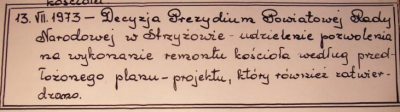 kościoła
13.VII.1973 — Decyzja Prezydium Powiatowej Rady
Narodowej w Strzyżowie - udzielenie pozwolenia
na wykonanie remontu kościoła według przed-
łożonego planu - projektu, który również zatwier-
dzono.